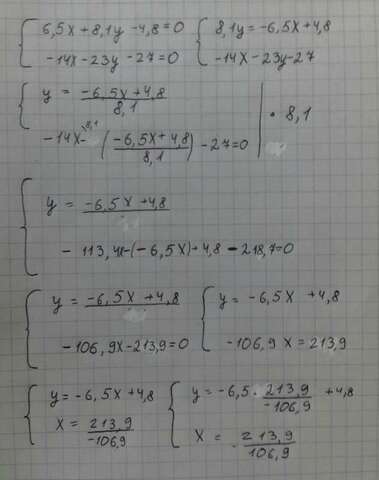 6,5x + 8,1y - 4,8 = 0
-14x - 23y - 27 = 0
8,1y = -6,5x + 4,8
-14x - 23y - 27
y = -6,5x + 4,8 / 8,1
-14x - 8,1 ( -6,5x + 4,8 / 8,1 ) - 27 = 0 | · 8,1
y = -6,5x + 4,8
- 113,4x - (-6,5x) + 4,8 - 218,7 = 0
y = -6,5x + 4,8
-106,9x - 213,9 = 0
y = -6,5x + 4,8
-106,9x = 213,9
y = -6,5x + 4,8
x = 213,9 / -106,9
y = -6,5 · 213,9 / -106,9 + 4,8
x = - 213,9 / 106,9